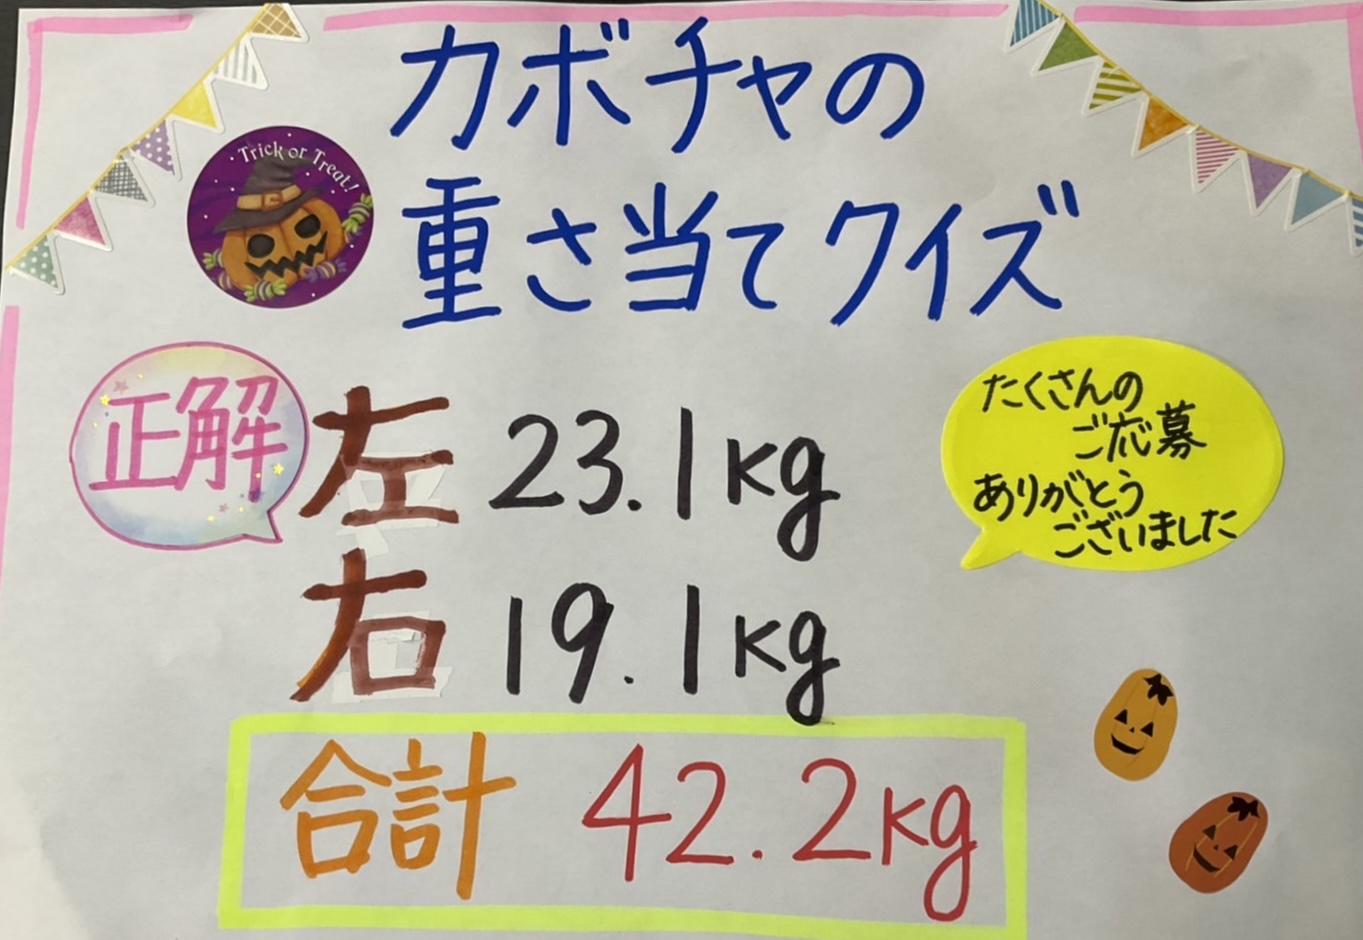 カボチャの
重さ当てクイズ
Trick or Treat!
正解
左 23.1kg
右 19.1kg
合計 42.2kg
たくさんの
ご応募
ありがとう
ございました